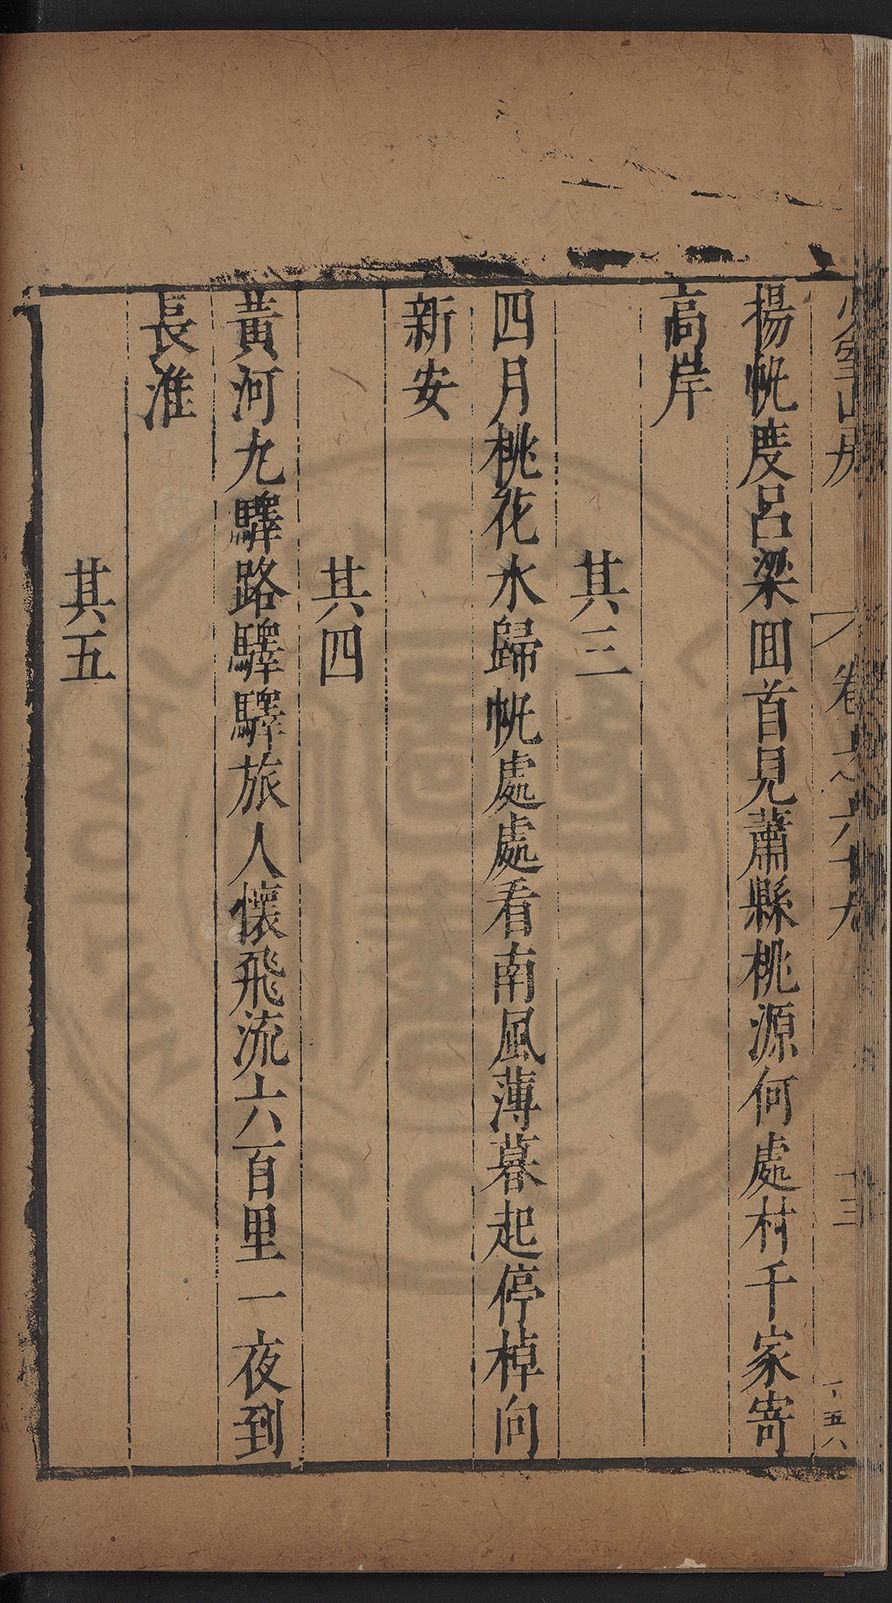 少室山房
卷之六十九
十三
五八
揚帆度呂梁回首見蕭縣桃源何處村千家寄
高岸
其三
四月桃花水歸帆處處看南風薄暮起停棹向
新安
其四
黃河九驛路驛驛旅人懷飛流六百里一夜到
長淮
其五